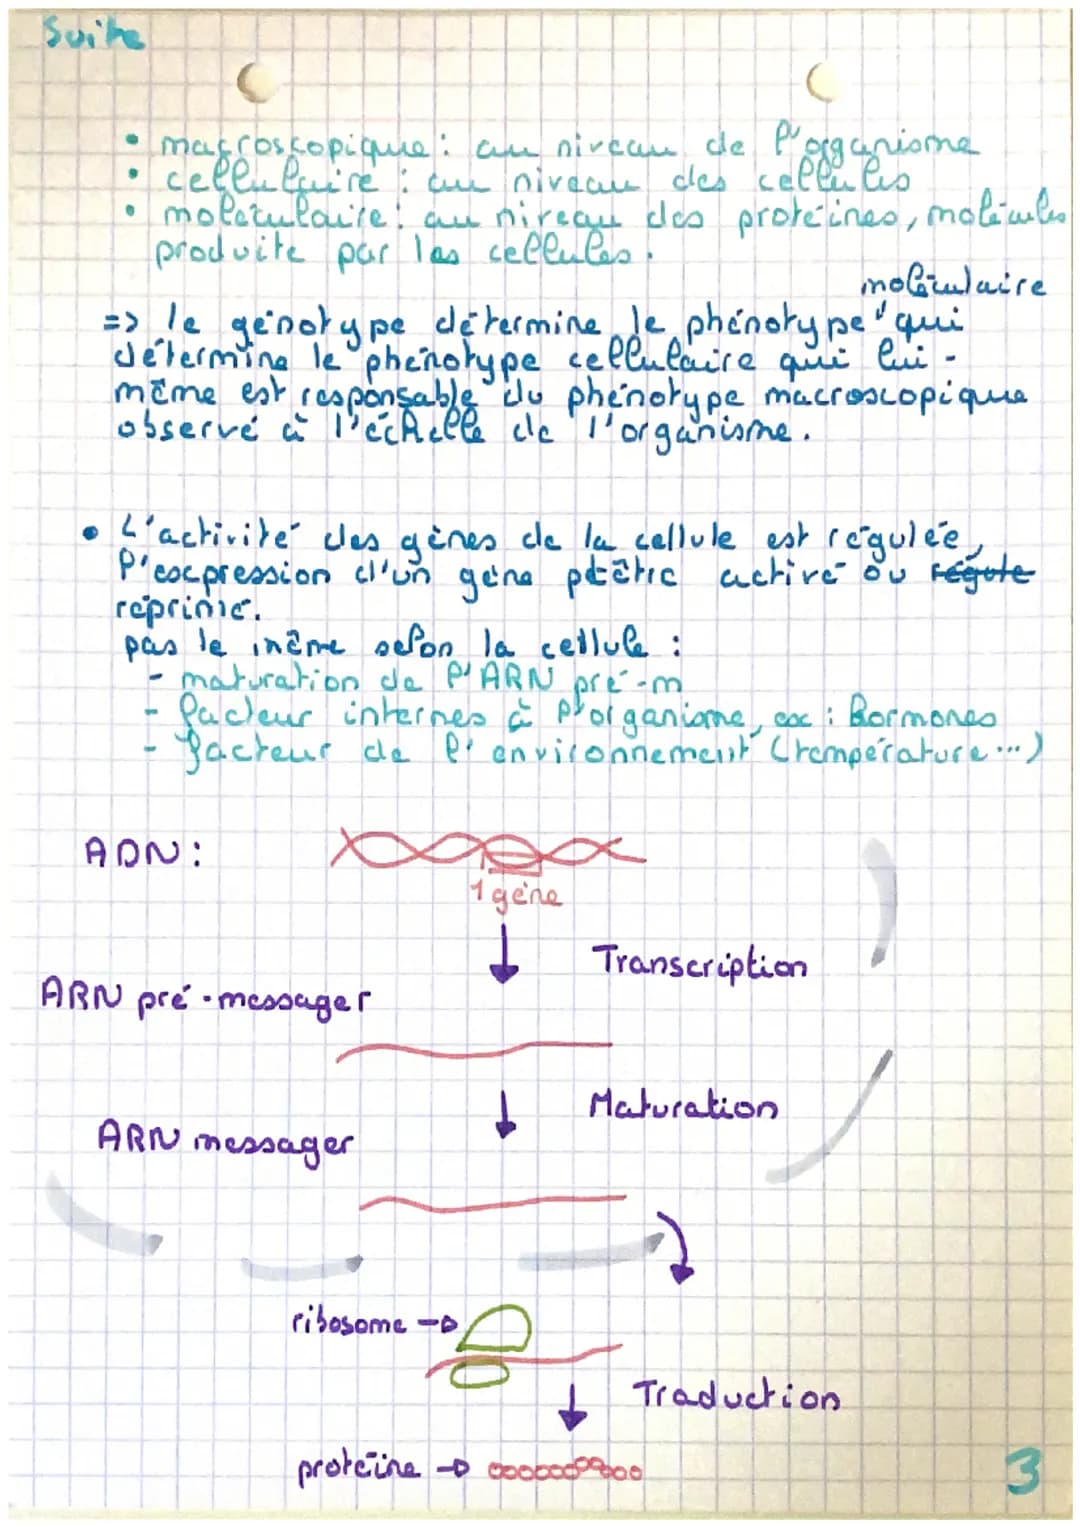 Suite
• macroscopique : au niveau de l'organisme
• cellulaire : au niveau des cellules
• moléculaire : au niveau des protéines, molécules
produite par les cellules.
moléculaire
=> le génotype détermine le phénotype qui
détermine le phénotype cellulaire qui lui -
même est responsable du phénotype macroscopique
observé à l'échelle de l'organisme.
• L'activité des gènes de la cellule est régulée,
l'expression d'un gène ptêtre activé ou régule
réprimé.
pas le même selon la cellule :
- maturation de l'ARN pré-m
- facteur internes à l'organisme, ex : hormones
- facteur de l'environnement (température ...)
ADN :
1 gène
Transcription
ARN pré-messager
Maturation
ARN messager
ribosome
Traduction
protéine
3